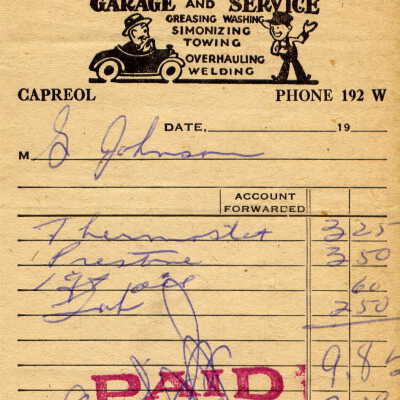 GARAGE AND SERVICE
GREASING WASHING
SIMONIZING
TOWING
OVERHAULING
WELDING
CAPREOL PHONE 192 W
DATE, 19
M S Johnson
ACCOUNT
FORWARDED
Thermostat 3 25
Prestone 3 50
1 qt 60
2 50
9.8
PAID